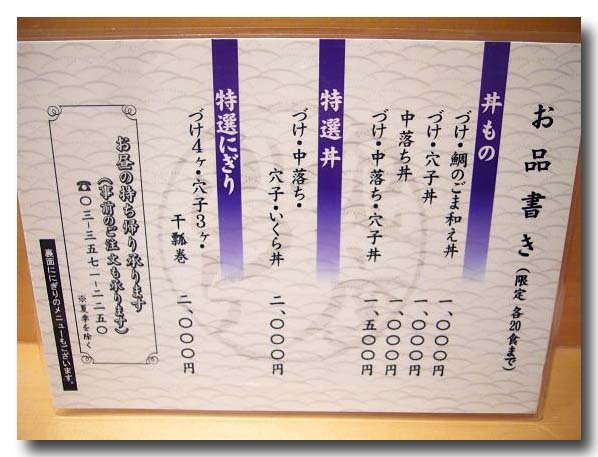 お品書き（限定 各20食まで）
丼もの
づけ・鯛のごま和え丼 一、〇〇〇円
づけ・穴子丼 一、〇〇〇円
中落ち丼 一、〇〇〇円
づけ・中落ち・穴子丼 一、五〇〇円
特選丼
づけ・中落ち・
穴子・いくら丼 二、〇〇〇円
特選にぎり
づけ4ヶ・穴子3ヶ・
干瓢巻 二、〇〇〇円
お昼の持ち帰り承ります
（事前のご注文も承ります）
☎〇三-三五七一-二二五〇
※夏季を除く
裏面ににぎりのメニューもございます。